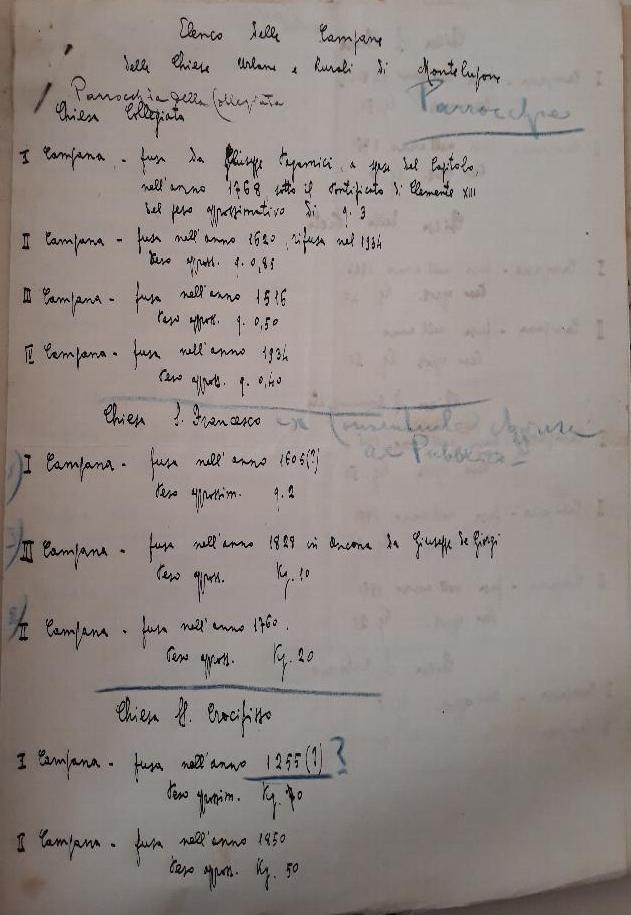 Elenco delle Campane
delle Chiese Urbane e Rurali di Montelupone
Parrocchia della Collegiata
Parrocchie
Chiesa Collegiata
I Campana - fusa da Giuseppe, a spese del Capitolo,
nell'anno 1768 sotto il Pontificato di Clemente XIII
del peso approssimativo di q. 3
II Campana - fusa nell'anno 1620, rifusa nel 1934
Peso appross. q. 0,85
III Campana - fusa nell'anno 1516
Peso appross. q. 0,50
IV Campana - fusa nell'anno 1934
Peso appross. q. 0,40
Chiesa S. Francesco ex Conventuale
al Pubblico
1) I Campana - fusa nell'anno 1605(?)
Peso approssim. q. 2
3) III Campana - fusa nell'anno 1829 in Ancona da Giuseppe de Giorgi
Peso appross. Kg. 10
2) II Campana - fusa nell'anno 1760.
Peso appross. Kg. 20
Chiesa SS. Crocifisso
I Campana - fusa nell'anno 1255(?) ?
Peso approssim. Kg. 70
II Campana - fusa nell'anno 1850
Peso appross. Kg. 50